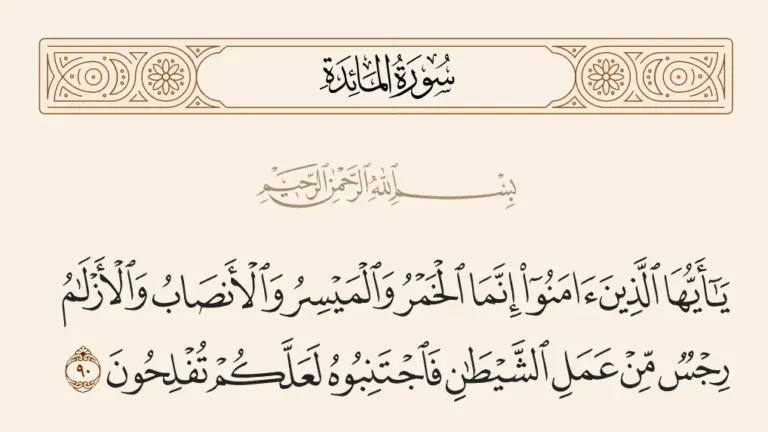 سُورَةُ المَائِدَةِ
بِسْمِ ٱللَّهِ ٱلرَّحْمَٰنِ ٱلرَّحِيمِ
يَٰٓأَيُّهَا ٱلَّذِينَ ءَامَنُوٓا۟ إِنَّمَا ٱلْخَمْرُ وَٱلْمَيْسِرُ وَٱلْأَنصَابُ وَٱلْأَزْلَٰمُ
رِجْسٌ مِّنْ عَمَلِ ٱلشَّيْطَٰنِ فَٱجْتَنِبُوهُ لَعَلَّكُمْ تُفْلِحُونَ ٩٠